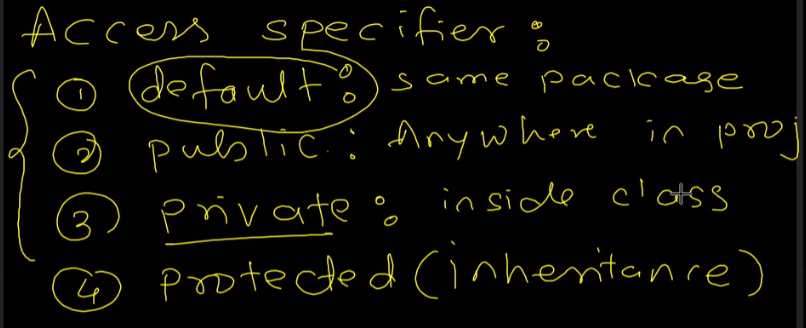 Access specifier :
① default : same package
② public : Anywhere in proj
③ private : inside class
④ protected (inheritance)